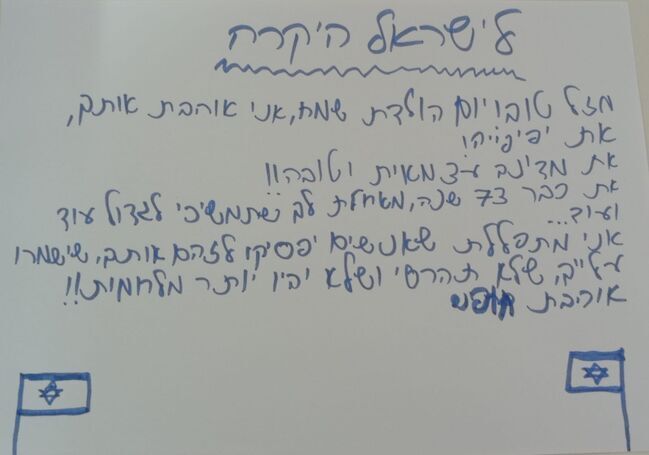 לישראל היקרה
מזל טוב ויום הולדת שמח, אני אוהבת אותך,
את יפיפייה!
את מדינה עצמאית וטובה!!
את כבר 73 שנה, מאחלת לך שתמשיכי לגדול עוד
ועוד...
אני מתפללת שאנשים יפסיקו לזהם אותך, שישמרו
עלייך, שלא תהרסי ושלא יהיו יותר מלחמות!!
אוהבת